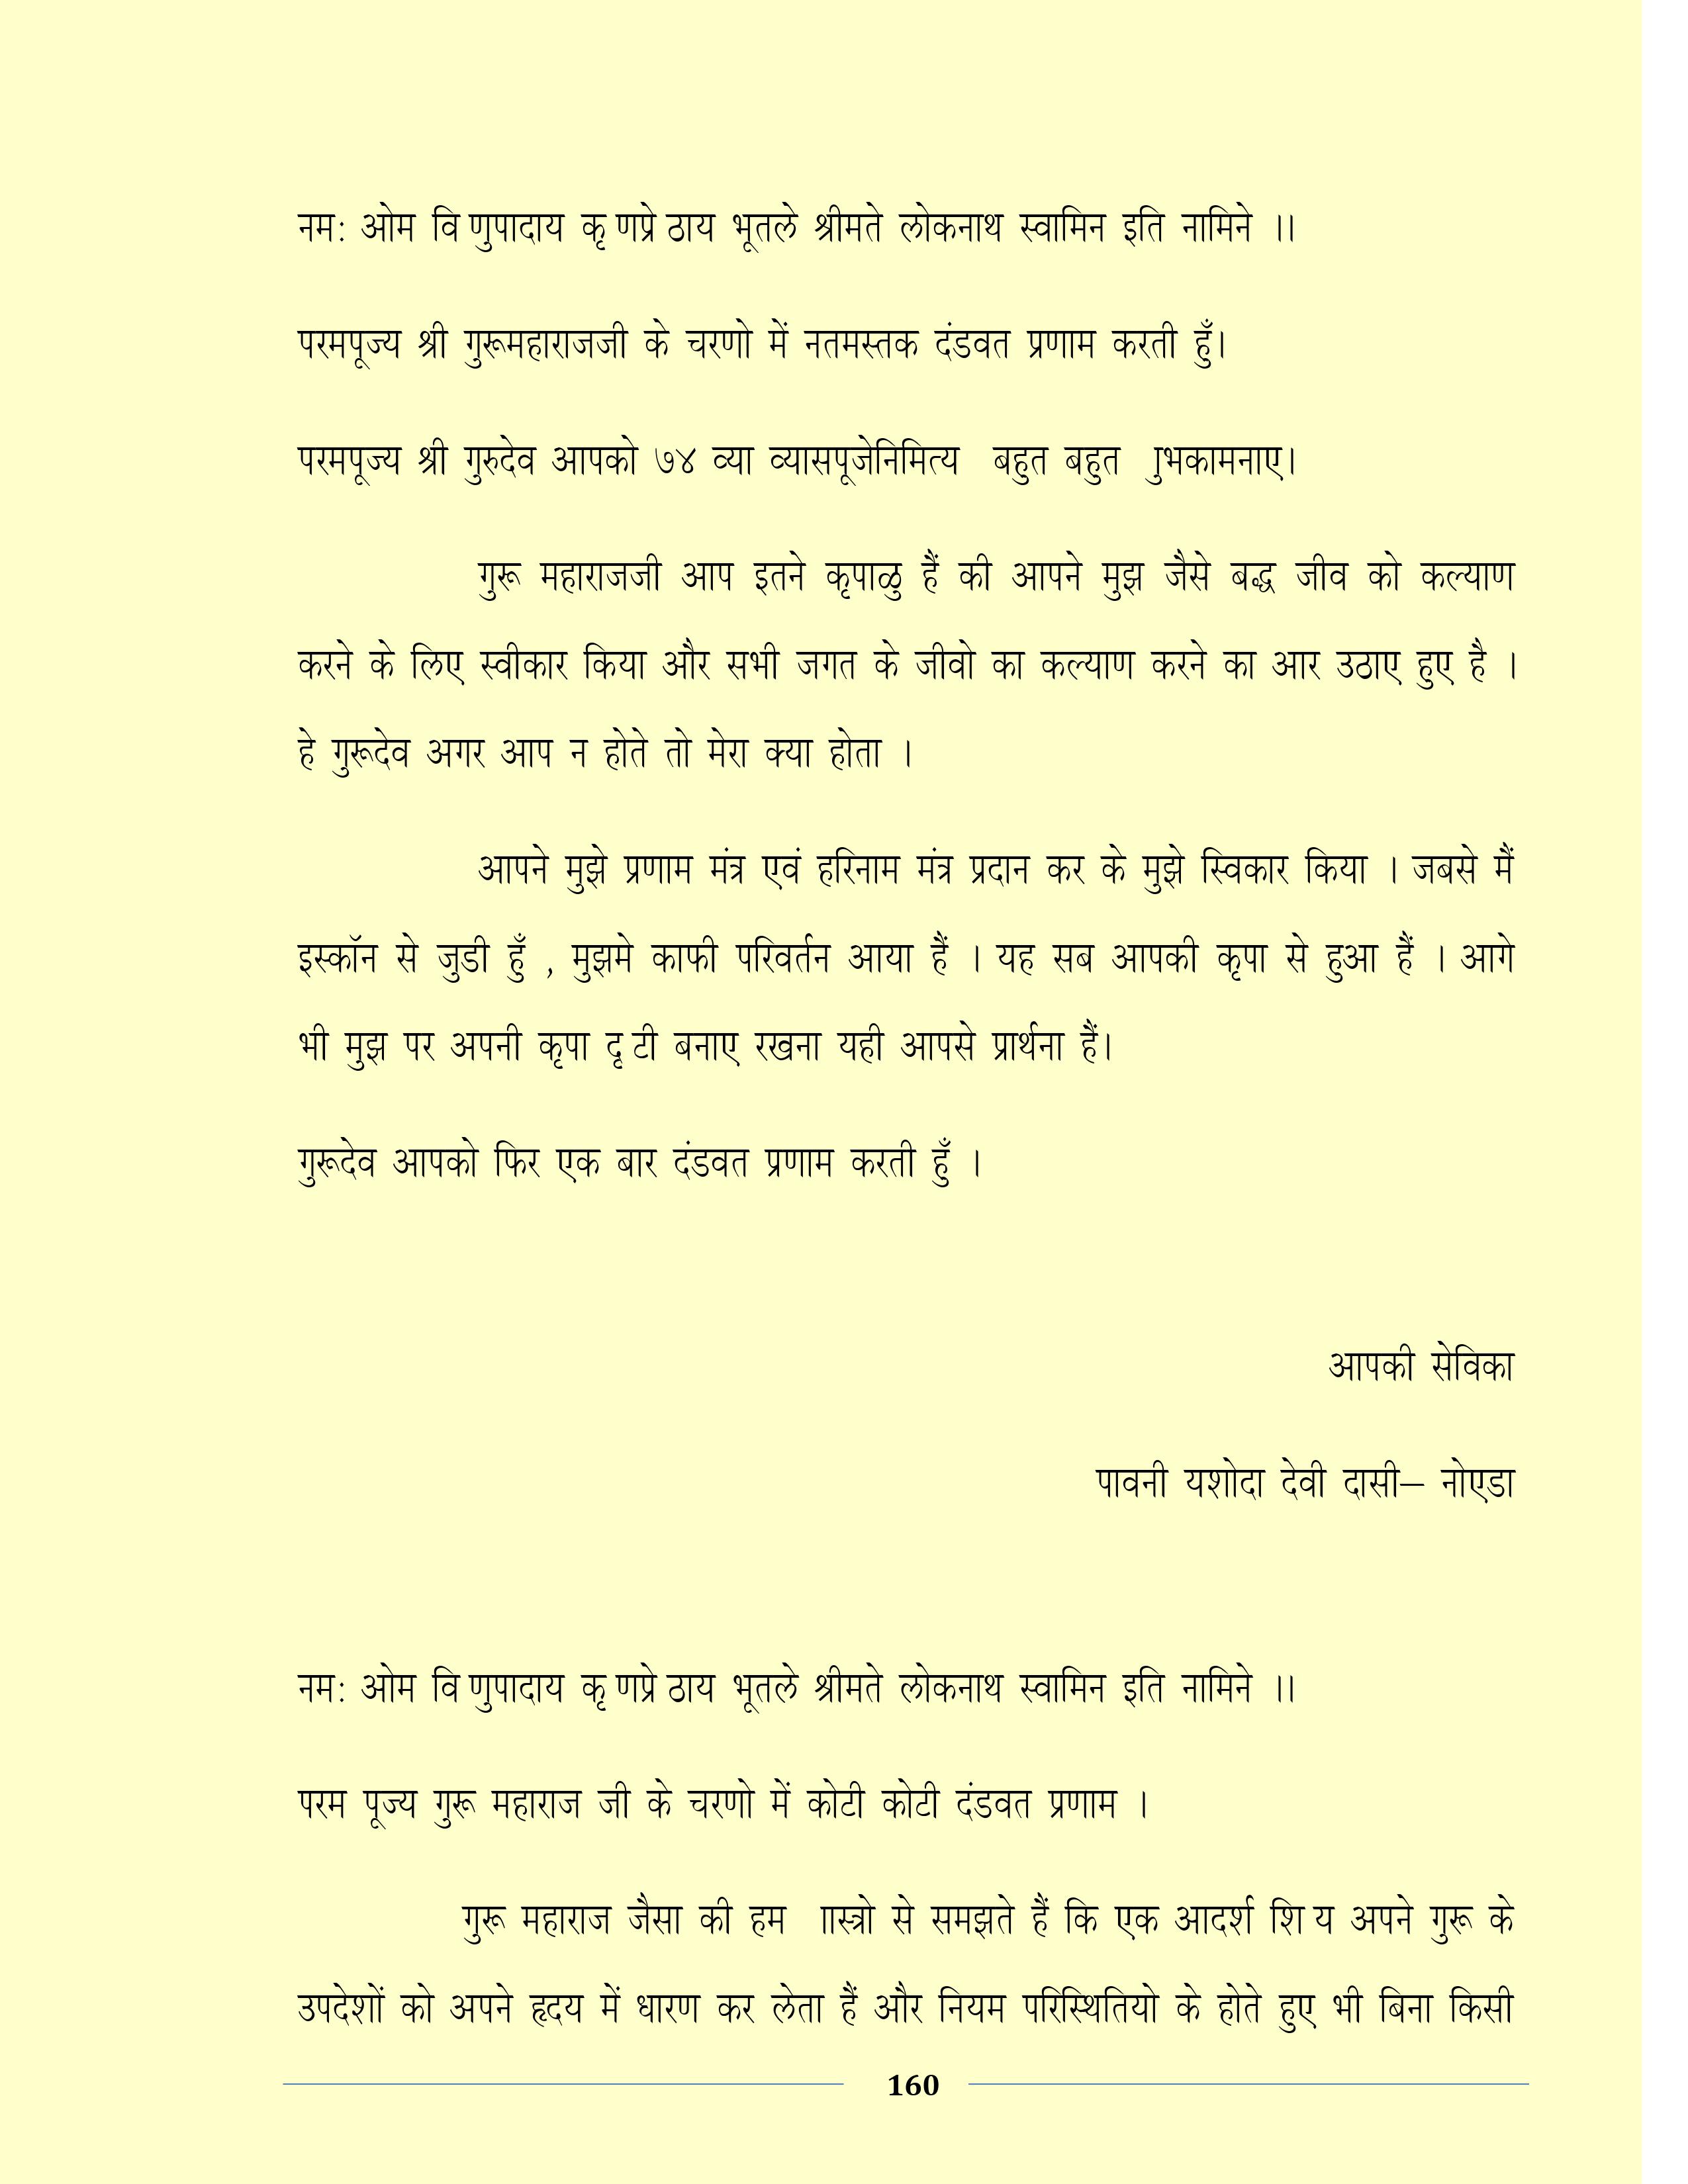 नम: ओम वि णुपादाय कृ णप्रे ठाय भूतले श्रीमते लोकनाथ स्वामिन इति नामिने ।।
परमपूज्य श्री गुरूमहाराजजी के चरणो में नतमस्तक दंडवत प्रणाम करती हुँ।
परमपूज्य श्री गुरुदेव आपको ७४ व्या व्यासपूजेनिमित्य बहुत बहुत ाुभकामनाए।
गुरू महाराजजी आप इतने कृपाळु हैं की आपने मुझ जैसे बद्ध जीव को कल्याण
करने के लिए स्वीकार किया और सभी जगत के जीवो का कल्याण करने का आर उठाए हुए है ।
हे गुरूदेव अगर आप न होते तो मेरा क्या होता ।
आपने मुझे प्रणाम मंत्र एवं हरिनाम मंत्र प्रदान कर के मुझे स्विकार किया । जबसे मैं
इस्कॉन से जुडी हुँ , मुझमे काफी परिवर्तन आया हैं । यह सब आपकी कृपा से हुआ हैं । आगे
भी मुझ पर अपनी कृपा दृ टी बनाए रखना यही आपसे प्रार्थना हैं।
गुरूदेव आपको फिर एक बार दंडवत प्रणाम करती हुँ ।
आपकी सेविका
पावनी यशोदा देवी दासी– नोएडा
नम: ओम वि णुपादाय कृ णप्रे ठाय भूतले श्रीमते लोकनाथ स्वामिन इति नामिने ।।
परम पूज्य गुरू महाराज जी के चरणो में कोटी कोटी दंडवत प्रणाम ।
गुरू महाराज जैसा की हम ाास्त्रो से समझते हैं कि एक आदर्श शि य अपने गुरू के
उपदेशों को अपने हृदय में धारण कर लेता हैं और नियम परिस्थितियो के होते हुए भी बिना किसी
160